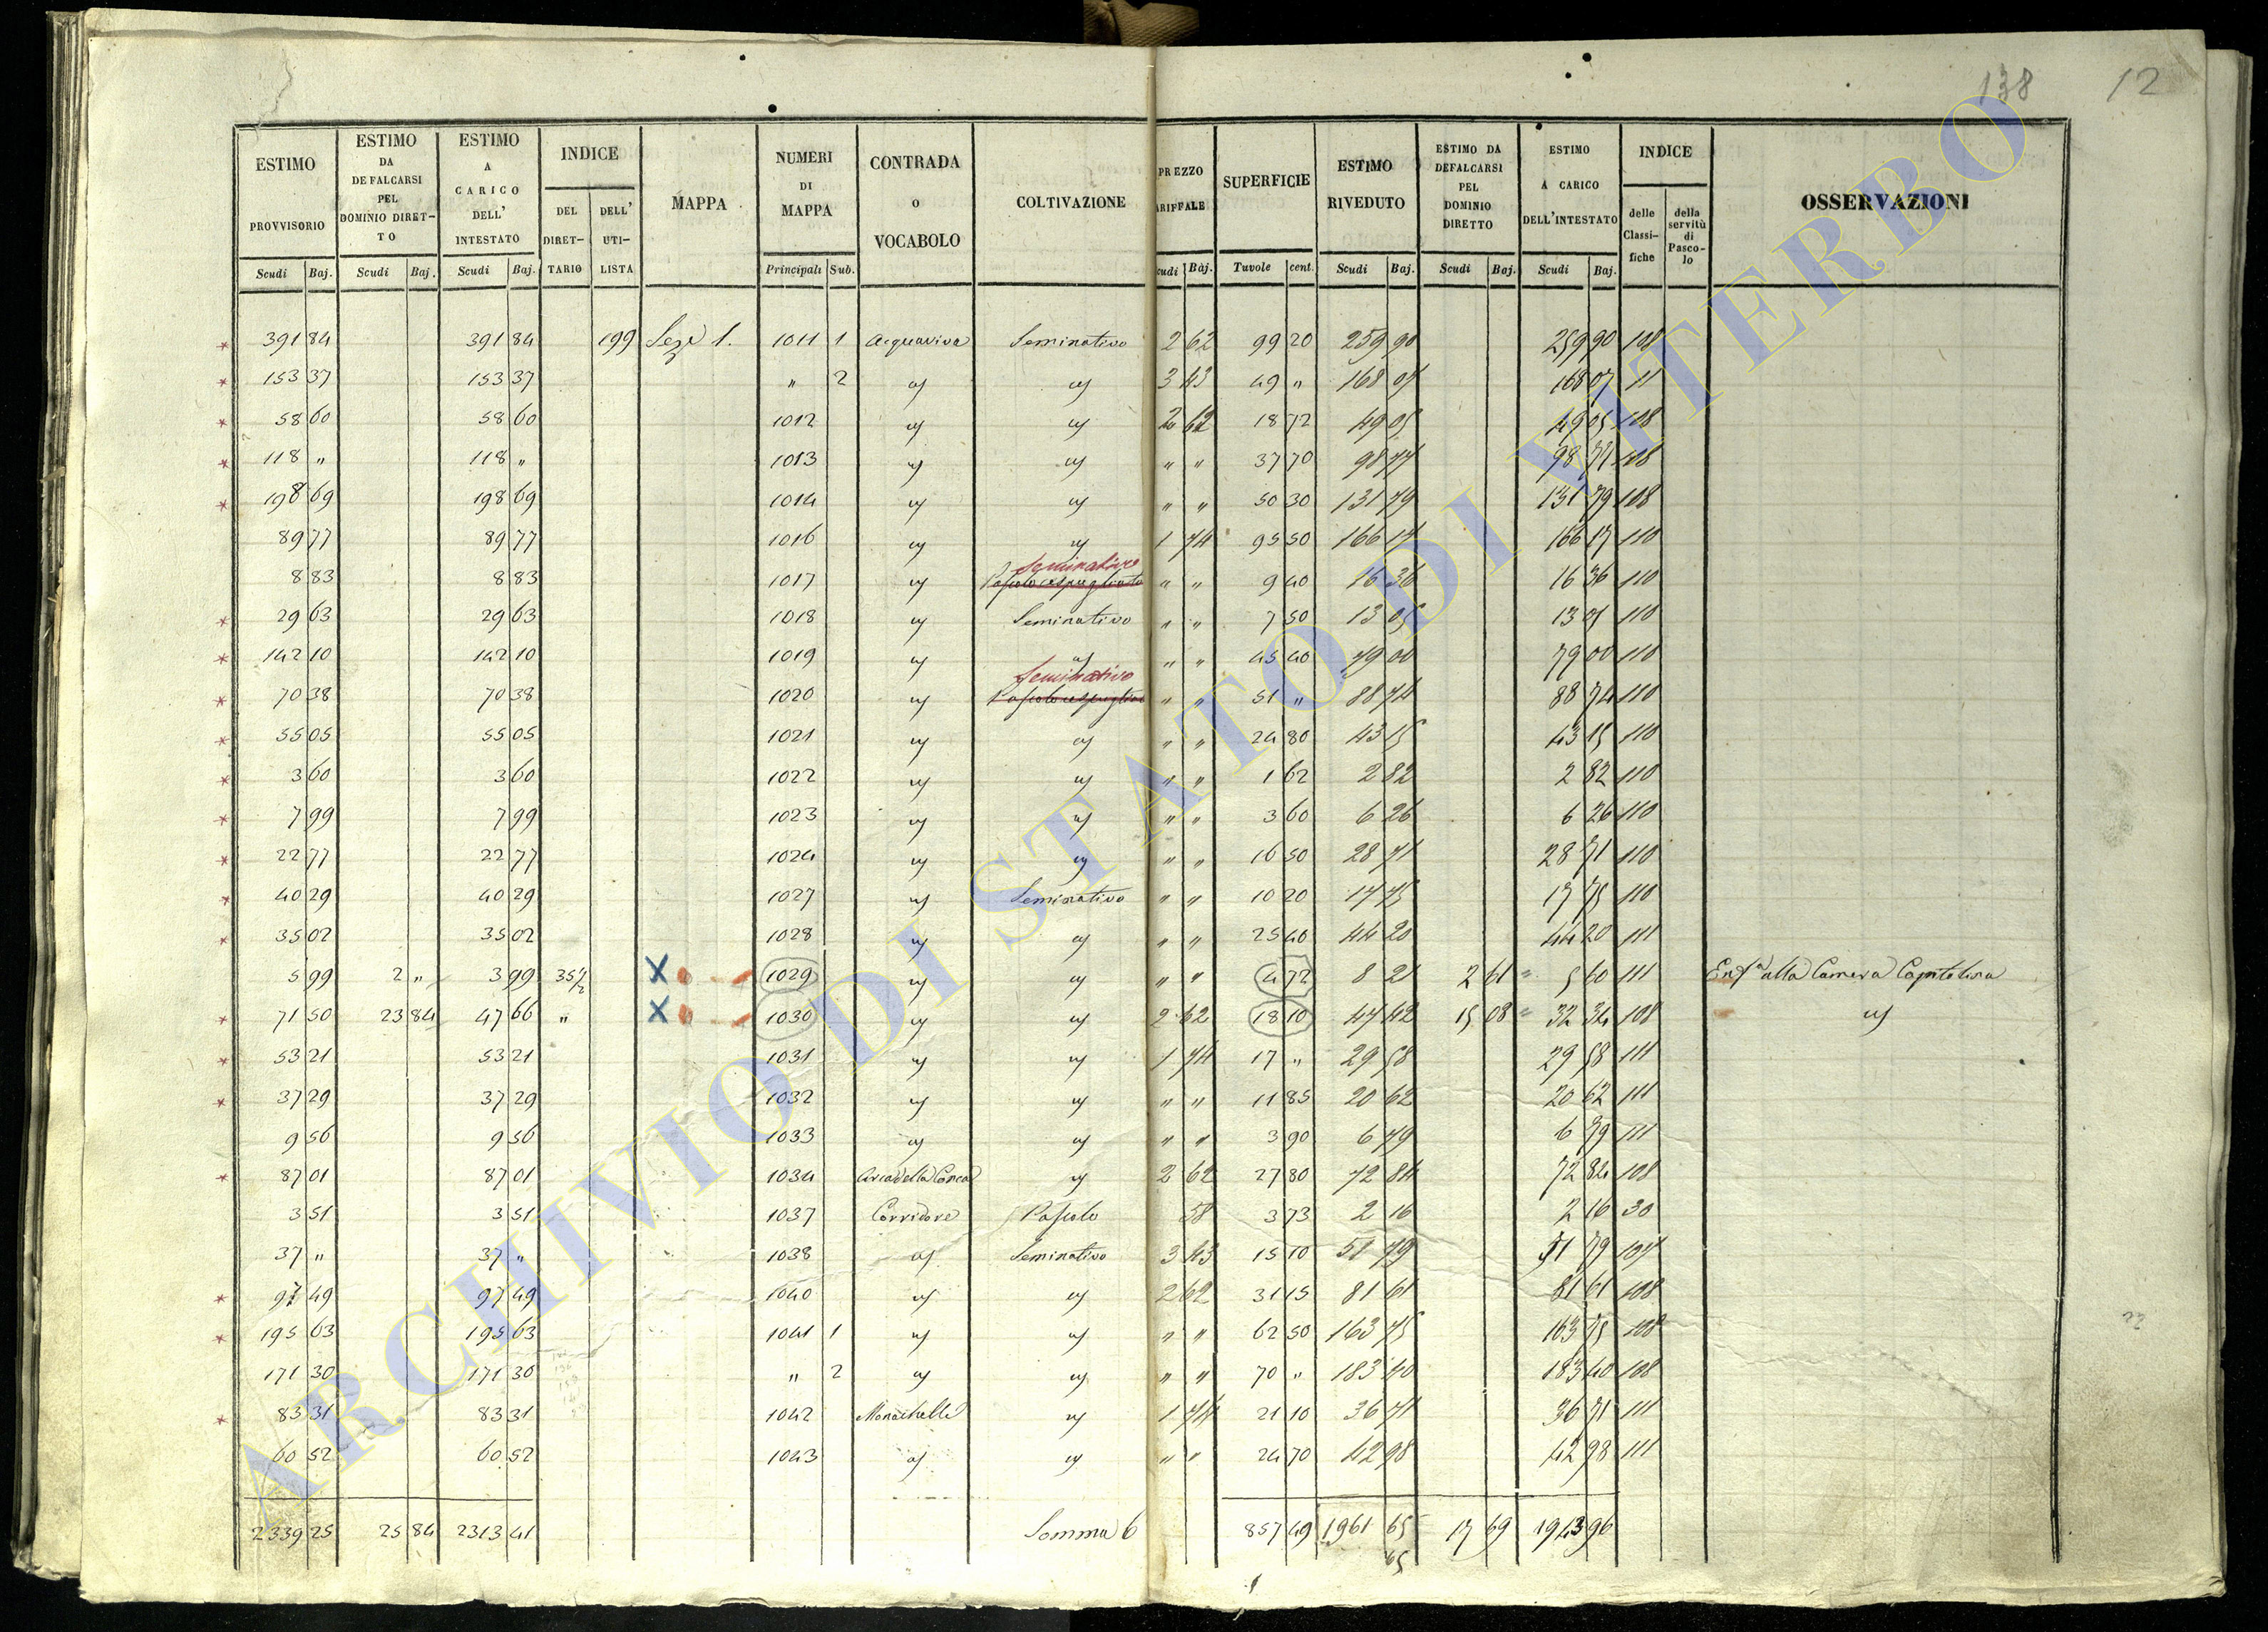 138 12
ESTIMO PROVVISORIO Scudi Baj. | ESTIMO DA DEFALCARSI PEL DOMINIO DIRETTO Scudi Baj. | ESTIMO A CARICO DELL' INTESTATO Scudi Baj. | INDICE DEL DIRETTARIO DELL' UTILISTA | MAPPA | NUMERI DI MAPPA Principali Sub. | CONTRADA O VOCABOLO | COLTIVAZIONE | PREZZO TARIFFALE Scudi Baj. | SUPERFICIE Tavole cent. | ESTIMO RIVEDUTO Scudi Baj. | ESTIMO DA DEFALCARSI PEL DOMINIO DIRETTO Scudi Baj. | ESTIMO A CARICO DELL'INTESTATO Scudi Baj. | INDICE delle Classifiche della servitù di Pascolo | OSSERVAZIONI
391 84 391 84 199 Sezi 1. 1011 1 Acquaviva Seminativo 2 62 99 20 259 90 259 90 108
153 37 153 37 " 2 " " 3 43 49 " 168 07 168 07 11
58 60 58 60 1012 " " 2 62 18 72 49 05 49 05 108
118 " 118 " 1013 " " " " 37 70 98 77 98 77 108
198 69 198 69 1014 " " " " 50 30 131 79 131 79 108
89 77 89 77 1016 " " 1 74 95 50 166 17 166 17 110
Seminativo
8 83 8 83 1017 " Pascolo cespugliato " " 9 40 16 36 16 36 110
29 63 29 63 1018 " Seminativo " " 7 50 13 05 13 05 110
142 10 142 10 1019 " " " " 45 40 79 00 79 00 110
Seminativo
70 38 70 38 1020 " Pascolo cespugliato " " 51 " 88 74 88 74 110
55 05 55 05 1021 " " " " 24 80 43 15 43 15 110
3 60 3 60 1022 " " " " 1 62 2 82 2 82 110
7 99 7 99 1023 " " " " 3 60 6 26 6 26 110
22 77 22 77 1024 " " " " 16 50 28 71 28 71 110
40 29 40 29 1027 " Seminativo " " 10 20 17 75 17 75 110
35 02 35 02 1028 " " " " 25 40 44 20 44 20 111
5 99 2 " 3 99 35 1/2 X 1029 " " " " 4 72 8 21 2 61 5 60 111 Enfa alla Camera Capitolina
71 50 23 84 47 66 " X 1030 " " 2 62 18 10 47 42 15 08 32 34 108 "
53 21 53 21 1031 " " 1 74 17 " 29 58 29 58 111
37 29 37 29 1032 " " " " 11 85 20 62 20 62 111
9 56 9 56 1033 " " " " 3 90 6 79 6 79 111
87 01 87 01 1034 Arca della Conca " 2 62 27 80 72 84 72 84 108
3 51 3 51 1037 Corridore Pascolo 58 3 73 2 16 2 16 30
37 " 37 " 1038 " Seminativo 3 43 15 10 51 79 51 79 107
97 49 97 49 1040 " " 2 62 31 15 81 61 81 61 108
195 63 195 63 1041 1 " " " " 62 50 163 75 163 75 108
171 30 171 30 " 2 " " " " 70 " 183 40 183 40 108
83 31 83 31 1042 Monachelle " 1 74 21 10 36 71 36 71 111
60 52 60 52 1043 " " " " 24 70 42 98 42 98 111
2339 25 25 84 2313 41 Somma 6 857 49 1961 65 17 69 1943 96
65
ARCHIVIO DI STATO DI VITERBO